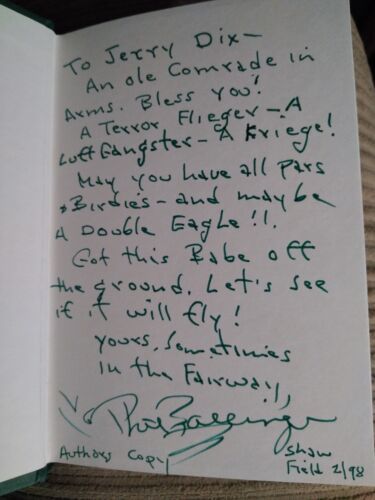 To Jerry Dix—
An ole Comrade in
Arms. Bless you!
A Terror Flieger—A
Luft Gangster—A Kriege!
May you have all Pars
& Birdies—and maybe
A Double Eagle!!.
Got this Babe off
the ground. Let's see
if it will fly!
yours, sometimes
in the Fairway,
Authors Copy
Shaw
Field 2/98